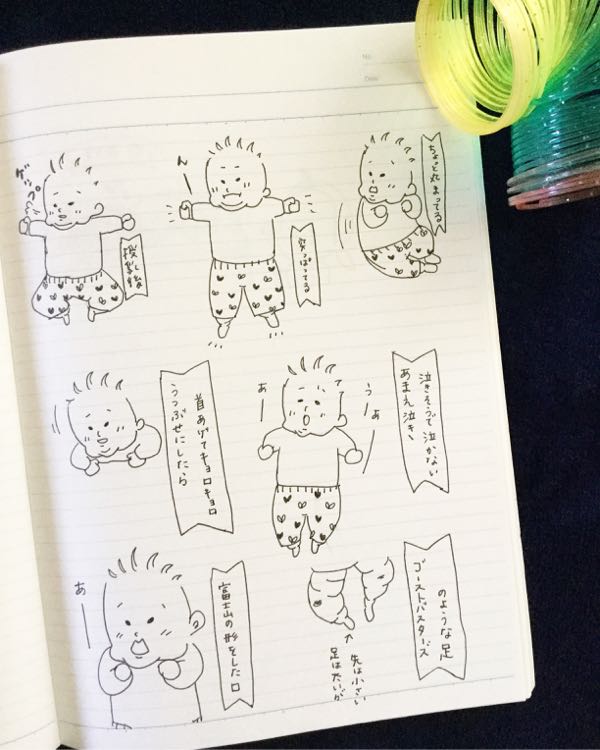 No.
Date
ちょっと丸まってる
ん
突っぱってる
ゲップ。
授乳後
泣きそうで泣かない
あまえ泣き
う
あ
あ
うつぶせにしたら
首あげてキョロキョロ
ゴーストバスターズ
のような足
足は太いが
先は小さい
富士山の形をした口
あ